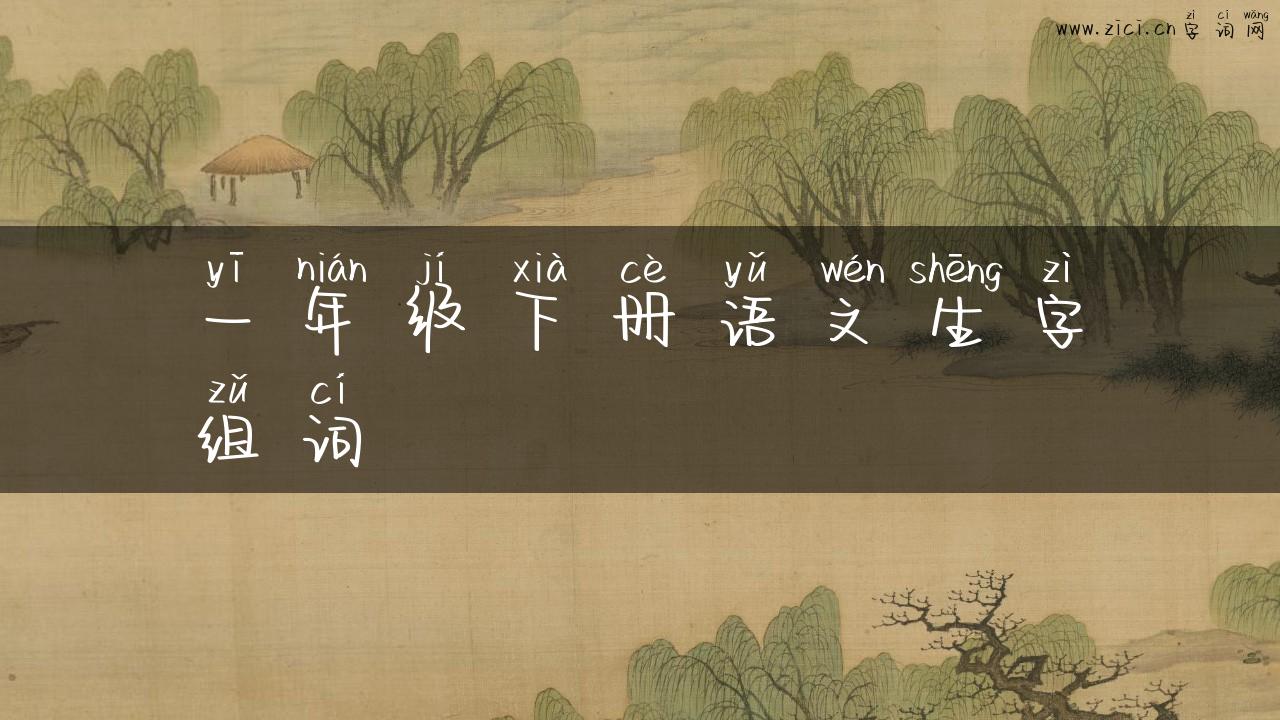 zì cí wǎng
www.zici.cn 字词网
yī nián jí xià cè yǔ wén shēng zì
一年级下册语文生字
zǔ cí
组词